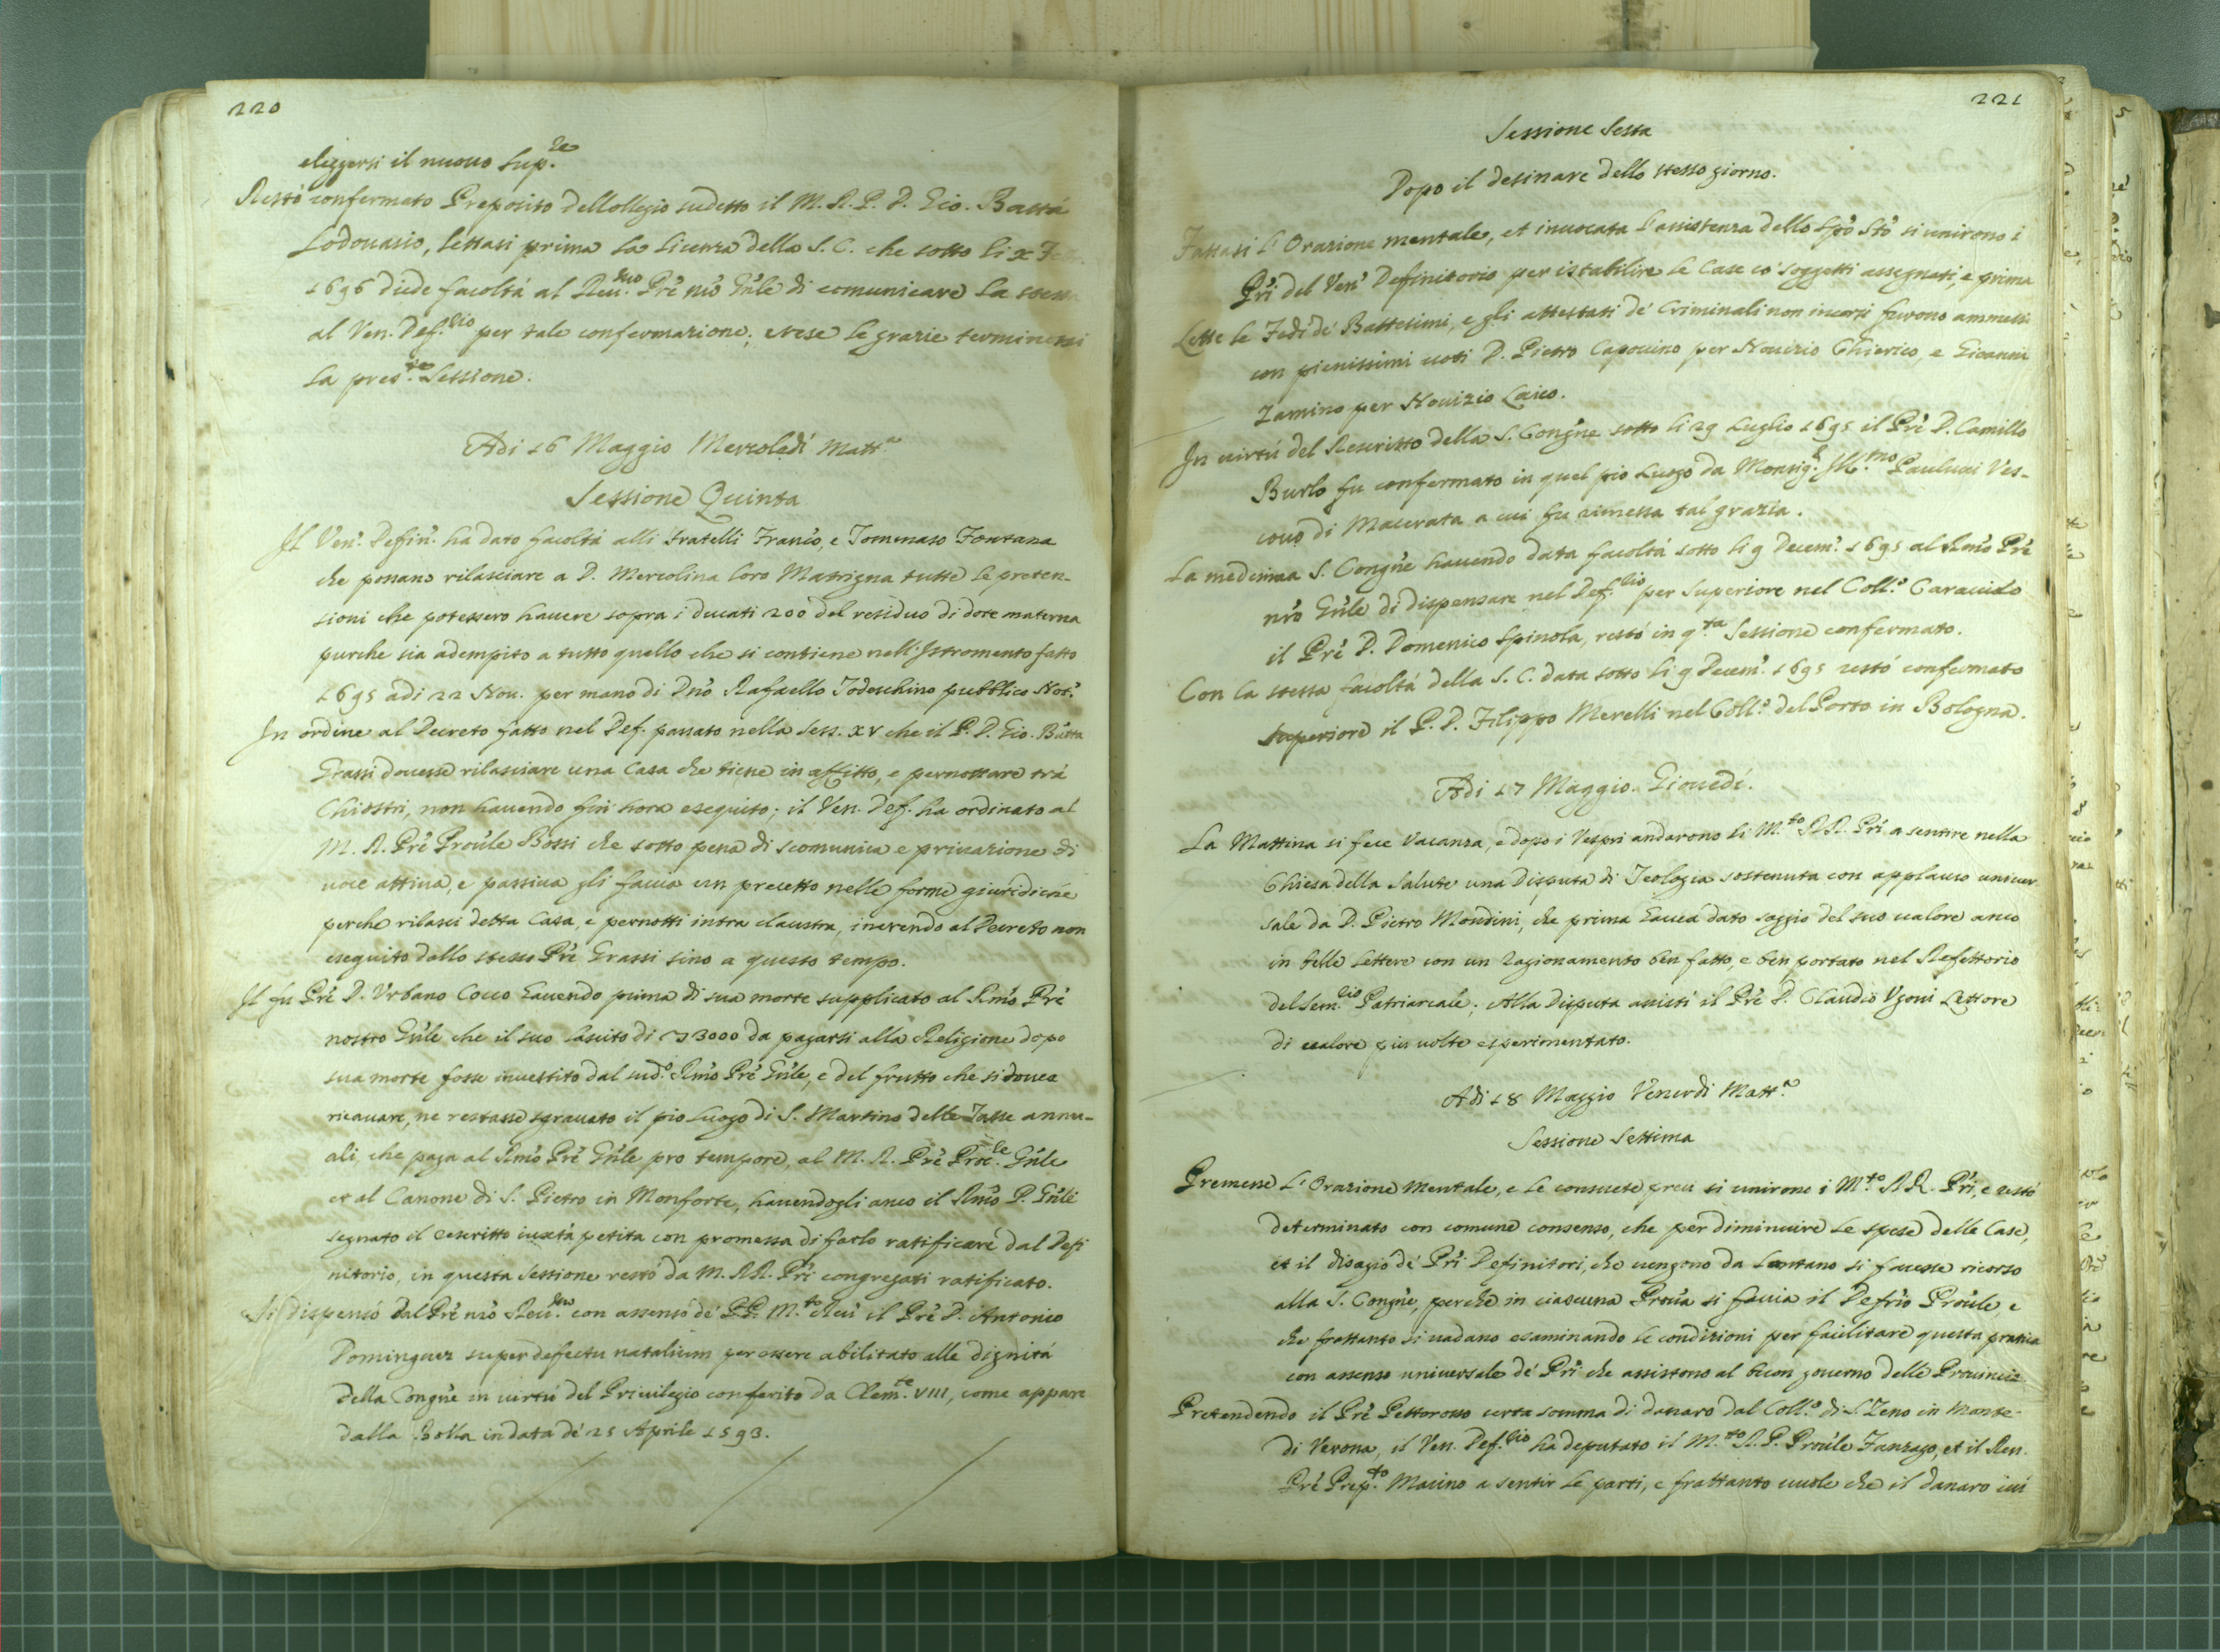 220
eleggersi il nuouo Sup.re
Restò confermato Preposito dellollegio sudetto il M. R. P. D. Gio. Batta
Lodouasio, lettasi prima la licenza della S. C. che sotto li x
1696 diede facoltà al Reu.mo Prē nrō Gñle di comunicare la stessa
al Ven. Def.rio per tale confermazione; e rese le grazie terminossi
la pres.te Sessione.
Adi 16 Maggio Mercoledì Matt.a
Sessione Quinta
Il Ven. Defin. ha dato facoltà alli fratelli Franc̄o, e Tommaso Fontana
che possano rilasciare a D. Mercolina loro Matrigna tutte le preten-
sioni che potessero hauere sopra i ducati 200 del residuo di dote materna
purche sia adempito a tutto quello che si contiene nell'Istromento fatto
1695 adi 22 Nou. per mano di Dnō Rafaello Todeschino pubblico Not.o
In ordine al Decreto fatto nel Def. passato nella Sess. XV che il P. D. Gio. Batta
Grassi douesse rilasciare una Casa che tiene in affitto, e pernottare trà
Chiostri, non hauendo fin hora esequito; il Ven. Def. ha ordinato al
M. R. Prē Proūle Bossi che sotto pena di scomunica e priuazione di
uoce attiua, e passiua gli faccia un precetto nelle forme giuridiche
perche rilasci detta Casa, e pernotti intra claustra, inerendo al Decreto non
esequito dallo stesso Prē Grassi sino a questo tempo.
Il fu Prē D. Vrbano Cocco hauendo prima di sua morte supplicato al Rmō Prē
nostro Gñle che il suo lascito di 3000 da pagarsi alla Religione dopo
sua morte fosse inuestito dal sud.o Rmō Prē Gñle, e del frutto che si douea
ricauare, ne restasse sgrauato il pio Luogo di S. Martino delle Tasse annu-
ali, che paga al Rmō Prē Gñle pro tempore, al M. R. Prē Proc.le Gñle
et al Canone di S. Pietro in Monforte, hauendogli anco il Rmō P. Gñle
segnato il rescritto iuxta petita con promessa di farlo ratificare dal Defi
nitorio, in questa Sessione restò da M. RR. Prī congregati ratificato.
Si dispensò dal Prē nrō Reu.mo con assenso de' PP. M.to Reu. il Prē D. Antonio
Dominguez super defectu natalium per essere abilitato alle dignità
della Congñe in uirtù del Priuilegio conferito da Clem.te VIII, come appare
dalla Bolla in data de' 25 Aprile 1593.
221
Sessione Sesta
Dopo il desinare dello stesso giorno.
Fattasi l'Orazione mentale, et inuocata l'assistenza dello Spō Stō si unirono i
Prī del Ven. Definitorio per istabilire le Case co' soggetti assegnati, e prima
Lette le Fedi de' Battesimi, e gli attestati de' Criminali non incorsi furono ammessi
con pienissimi uoti D. Pietro Capouino per Nouizio Chierico, e Gioanni
Zamino per Nouizio Laico.
In uirtù del Rescritto della S. Congñe sotto li 29 Luglio 1695 il Prē D. Camillo
Burlo fu confermato in quel pio Luogo da Monsig.r Ill.mo Paulucci Ves-
couo di Macerata a cui fu rimessa tal grazia.
La medesima S. Congñe hauendo data facoltà sotto li 9 Decem. 1695 al Rmō Prē
nrō Gñle di dispensare nel Def.rio per Superiore nel Coll.o Caracciolo
il Prē D. Domenico Spinola, restò in q.ta Sessione confermato.
Con la stessa facoltà della S. C. data sotto li 9 Decem. 1695 restò confermato
Superiore il P. D. Filippo Merelli nel Coll.o del Porto in Bologna.
Adi 17 Maggio. Giouedì.
La Mattina si fece Vacanza, e dopo i Vespri andarono li M.to RR. Prī a sentire nella
Chiesa della Salute una Disputa di Teologia sostenuta con applauso uniuer
sale da D. Pietro Mondini, che prima hauea dato saggio del suo ualore anco
in belle Lettere con un Ragionamento ben fatto, e ben portato nel Refettorio
del Sem.rio Patriarcale; Alla Disputa assistì il Prē D. Claudio Vgoni Lettore
di ualore più uolte esperimentato.
Adi 18 Maggio Venerdì Matt.a
Sessione Settima
Premesse l'Orazione Mentale, e le consuete preci si unirono i M.to RR. Prī, e restò
determinato con comune consenso, che per diminuire le spese delle Case,
et il disagio de' Prī Definitori, che uengono da lontano si facesse ricorso
alla S. Congñe, perche in ciascuna Proūa si faccia il Defrīo Proūle, e
che frattanto si uadano esaminando le condizioni per facilitare questa pratica
con assenso uniuersale de' Prī che assistono al buon gouerno delle Prouincie
Pretendendo il Prē Pettorosso certa somma di danaro dal Coll.o di S. Zeno in Monte
di Verona, il Ven. Def.rio ha deputato il M.to R. P. Proūle Zanzago, et il Reu.
Prē Prep.to Macino a sentir le parti, e frattanto uuole che il danaro iui